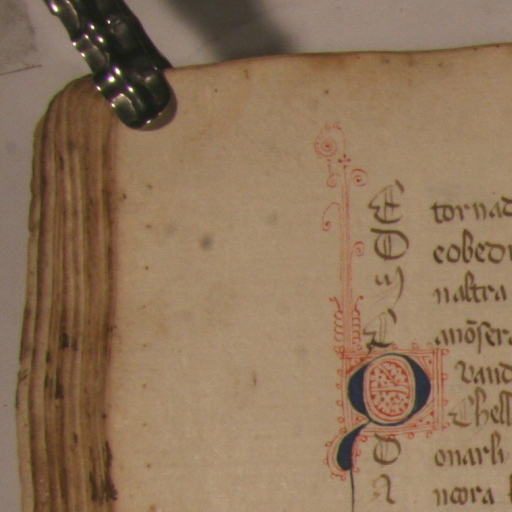 E tornad
eobedi
naltra
anõser
Quand
Chell
Donarli
Ancora